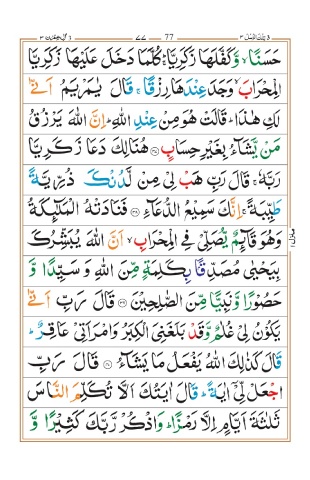 تلك الرسل ٣ ٧٧ 77 اٰل عمرٰن ٣
حَسَنًا ۙ وَّكَفَّلَهَا زَكَرِيَّا ؕ كُلَّمَا دَخَلَ عَلَيْهَا زَكَرِيَّا
الْمِحْرَابَ ۙ وَجَدَ عِنْدَهَا رِزْقًا ۚ قَالَ يٰمَرْيَمُ اَنّٰى
لَكِ هٰذَا ؕ قَالَتْ هُوَ مِنْ عِنْدِ اللّٰهِ ؕ اِنَّ اللّٰهَ يَرْزُقُ
مَنْ يَّشَآءُ بِغَيْرِ حِسَابٍ ﴿۳۷﴾ هُنَالِكَ دَعَا زَكَرِيَّا
رَبَّهٗ ۚ قَالَ رَبِّ هَبْ لِىْ مِنْ لَّدُنْكَ ذُرِّيَّةً
طَيِّبَةً ۚ اِنَّكَ سَمِيْعُ الدُّعَآءِ ﴿۳۸﴾ فَنَادَتْهُ الْمَلٰٓئِكَةُ
وَهُوَ قَآئِمٌ يُّصَلِّىْ فِى الْمِحْرَابِ ۙ اَنَّ اللّٰهَ يُبَشِّرُكَ
بِيَحْيٰى مُصَدِّقًۢا بِكَلِمَةٍ مِّنَ اللّٰهِ وَ سَيِّدًا وَّ
حَصُوْرًا وَّ نَبِيًّا مِّنَ الصّٰلِحِيْنَ ﴿۳۹﴾ قَالَ رَبِّ اَنّٰى
يَكُوْنُ لِىْ غُلٰمٌ وَّ قَدْ بَلَغَنِىَ الْكِبَرُ وَامْرَاَتِىْ عَاقِرٌ ؕ
قَالَ كَذٰلِكَ اللّٰهُ يَفْعَلُ مَا يَشَآءُ ﴿۴۰﴾ قَالَ رَبِّ
اجْعَلْ لِّىْۤ اٰيَةً ؕ قَالَ اٰيَتُكَ اَلَّا تُكَلِّمَ النَّاسَ
ثَلٰثَةَ اَيَّامٍ اِلَّا رَمْزًا ؕ وَاذْكُرْ رَّبَّكَ كَثِيْرًا وَّ